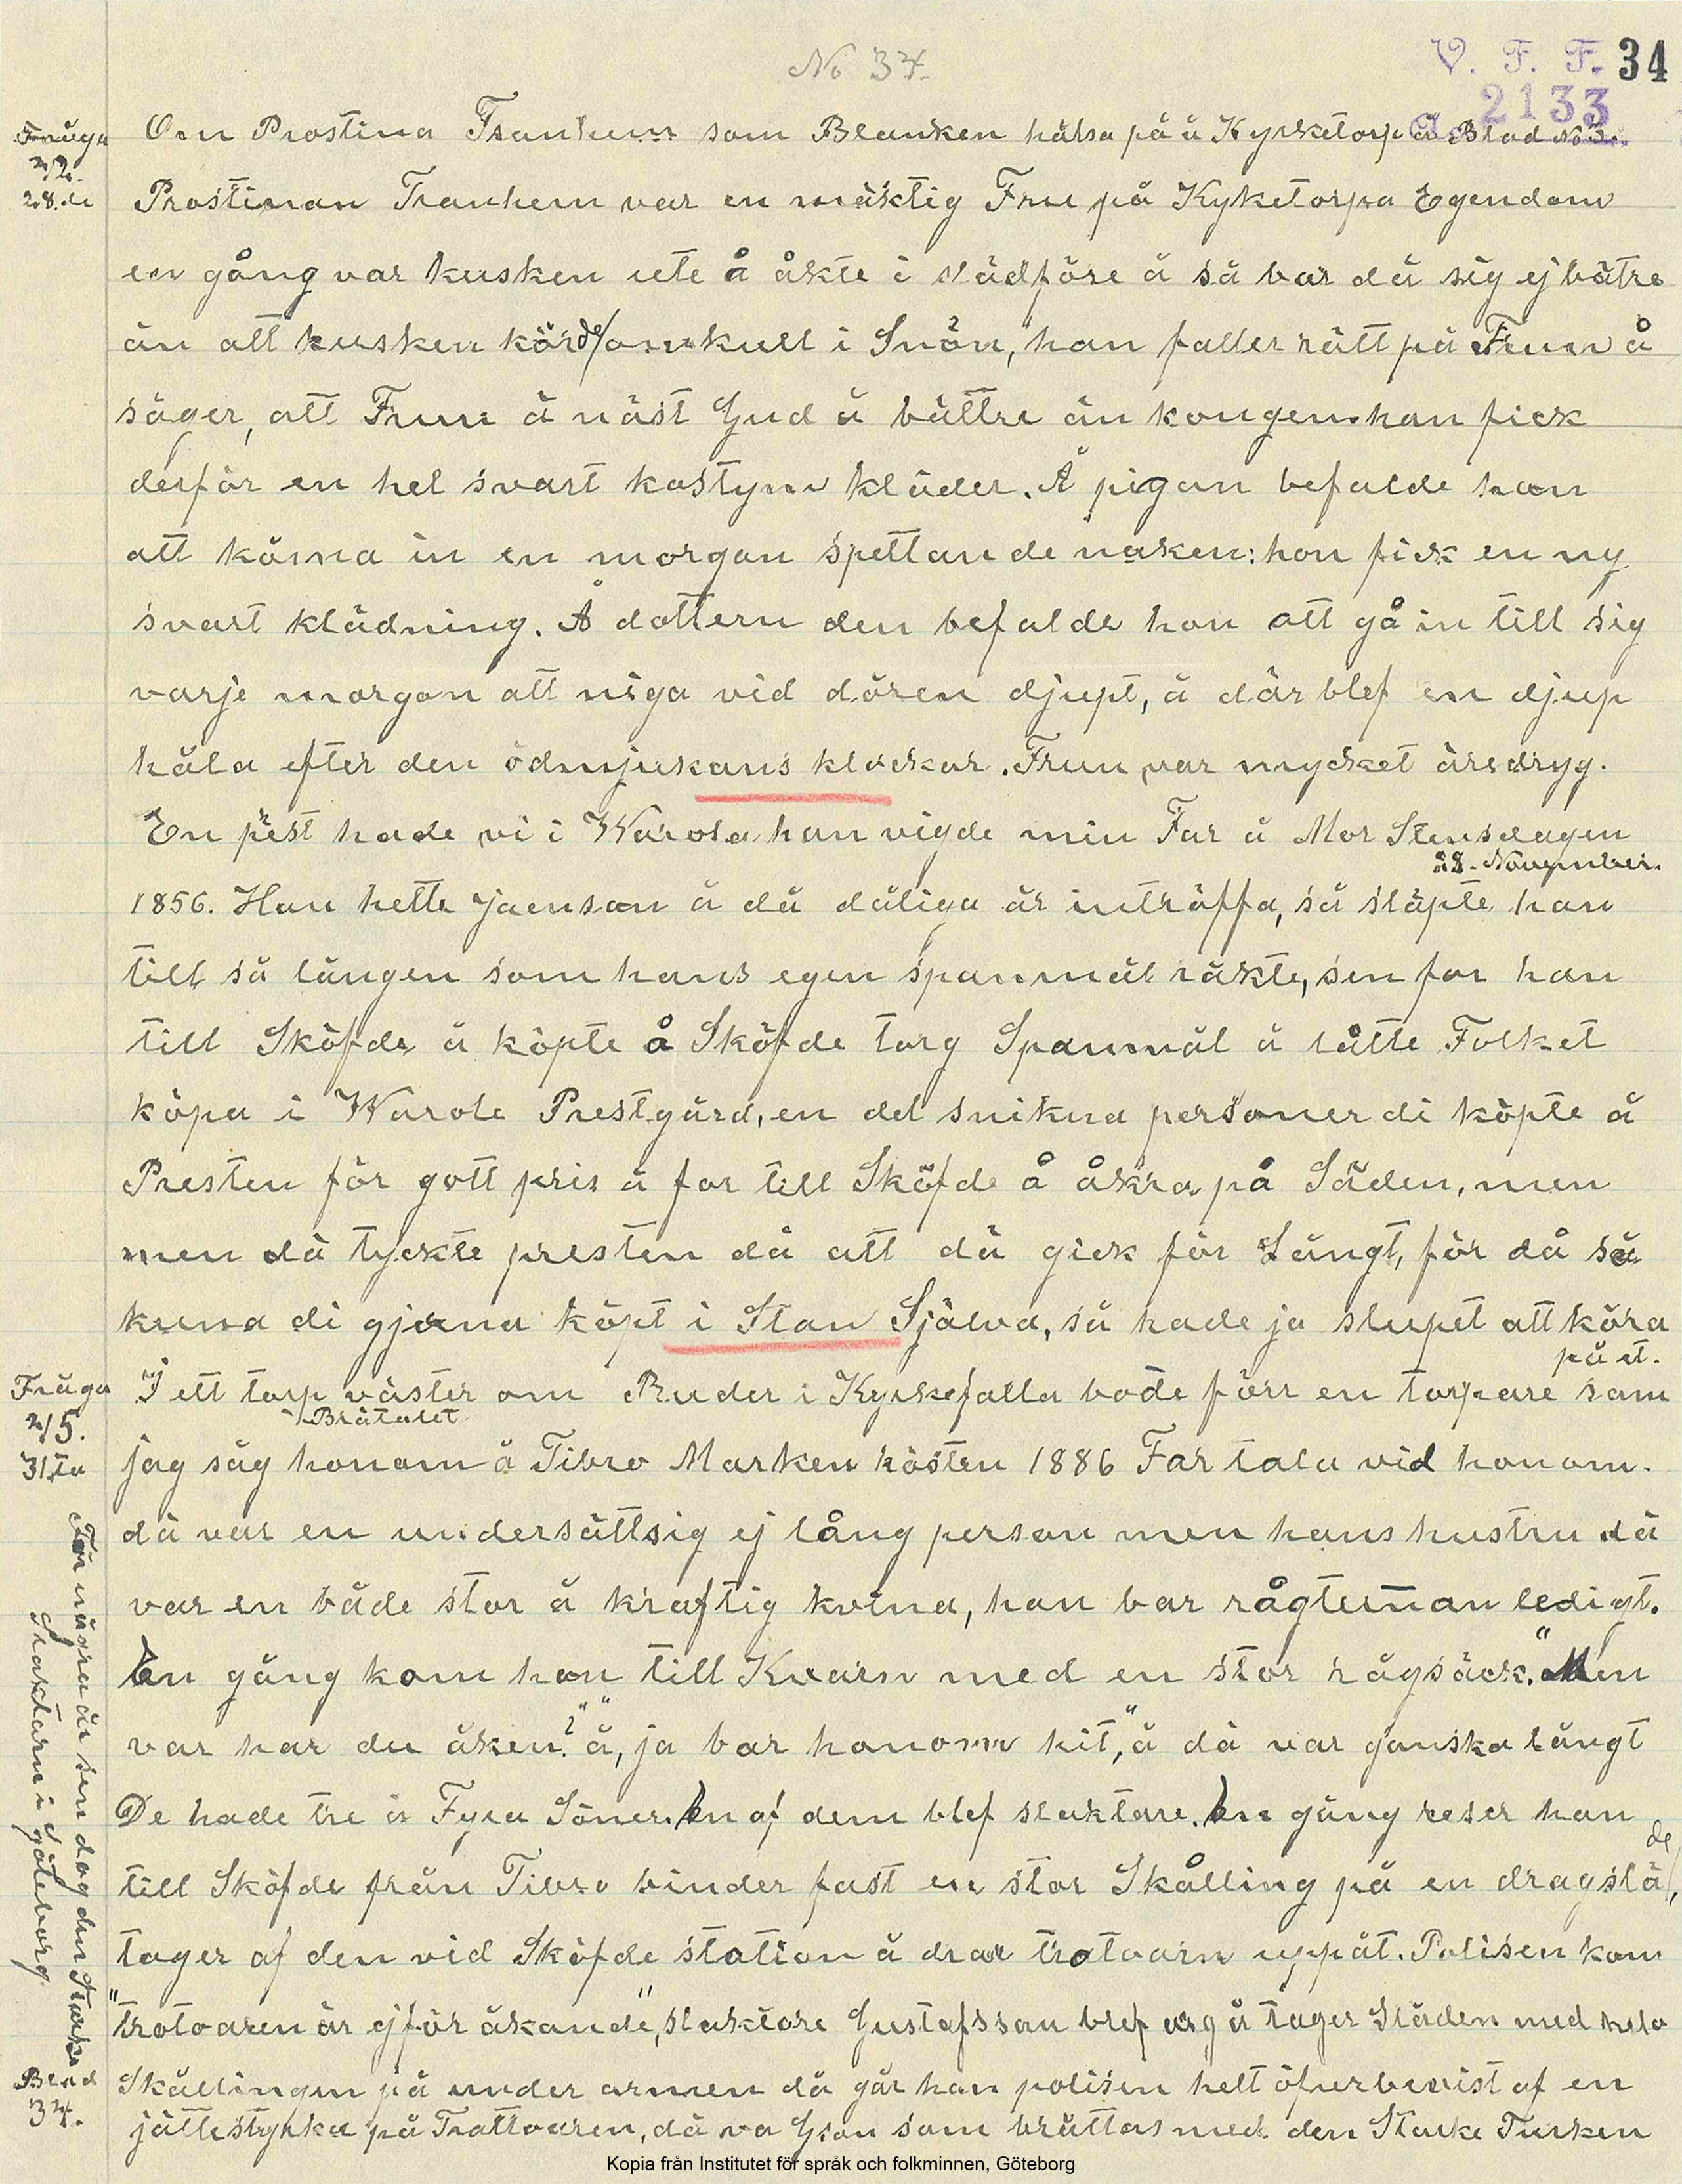 No 34.
V. F. F. 34
2133
Fråga
42.
28.de
Om Prostina Tranhem som Blanken hälsa på å Kyrketorp å Blad No 3.
Prostinan Tranhem var en mäktig Fru på Kyketorpa Egendom
en gång var kusken ute å åkte i slädföre å så bar dä sig ej bätre
än att kusken körde omkull i Snön, han faller rätt på Frun å
säger, att Frun ä näst Gud ä bättre än kongen. han fick
derför en hel svart kostym kläder. Å pigan befalde hon
att kåma in en morgon spettande naken: hon fick en ny
svart klädning. Å dottern den befalde hon att gå in till sig
varje morgon att niga vid dören djupt, å där blef en djup
håla efter den ödmjukans klockar. Frun var mycket äredryg.
En prest hade vi i Warola han vigde min Far å Mor Stensdagen
28. November.
1856. Han hette Jaenson å då dåliga år inträffa, så släpte han
till så längen som hans egen spanmål räkte, sen for han
till Sköfde å köpte å Sköfde torg Spanmål å lätte Folket
köpa i Warola Prestgård, en del snikna personer di köpte å
Presten för gott pris å for till Sköfde å åkra på Säden, men
men dä tyckte presten då att dä gick för Långt, för då så
kuna di gjerna köpt i Stan Själva, så hade ja slupet att köra
på et.
Fråga
215.
31.ta
I ett torp väster om Ruder i Kyrkefalla bode förr en torpare som
Bråtalet
jag såg honom å Tibro Marken hösten 1886 Far tala vid honom.
dä var en undersättsig ej lång person men hans hustru dä
var en både stor å kraftig kvina, hon bar rågtunan ledigt.
En gång kom hon till Kvarn med en stor rågsäck. "Men
var har du åken?" "å, ja bar honom hit," å dä var ganska långt
De hade tre à Fyra Söner. En af dem blef slaktare. En gång reser han
till Sköfde från Tibro binder fast en stor Skålling på en dragsläde,
tager af den vid Sköfde station å drar trotoarn uppåt. Polisen kom
"trotoaren är ej för åkande", slaktare Gustafsson blef arg å tager Släden med hela
Skållingen på under armen då går han polisen helt öfverbevist af en
jättestyrka på Trattoaren, dä va Gson som bråttas med den Starke Turken
För några år sen dog den Starke
Slaktarn i göteborg
Blad
34.
Kopia från Institutet för språk och folkminnen, Göteborg